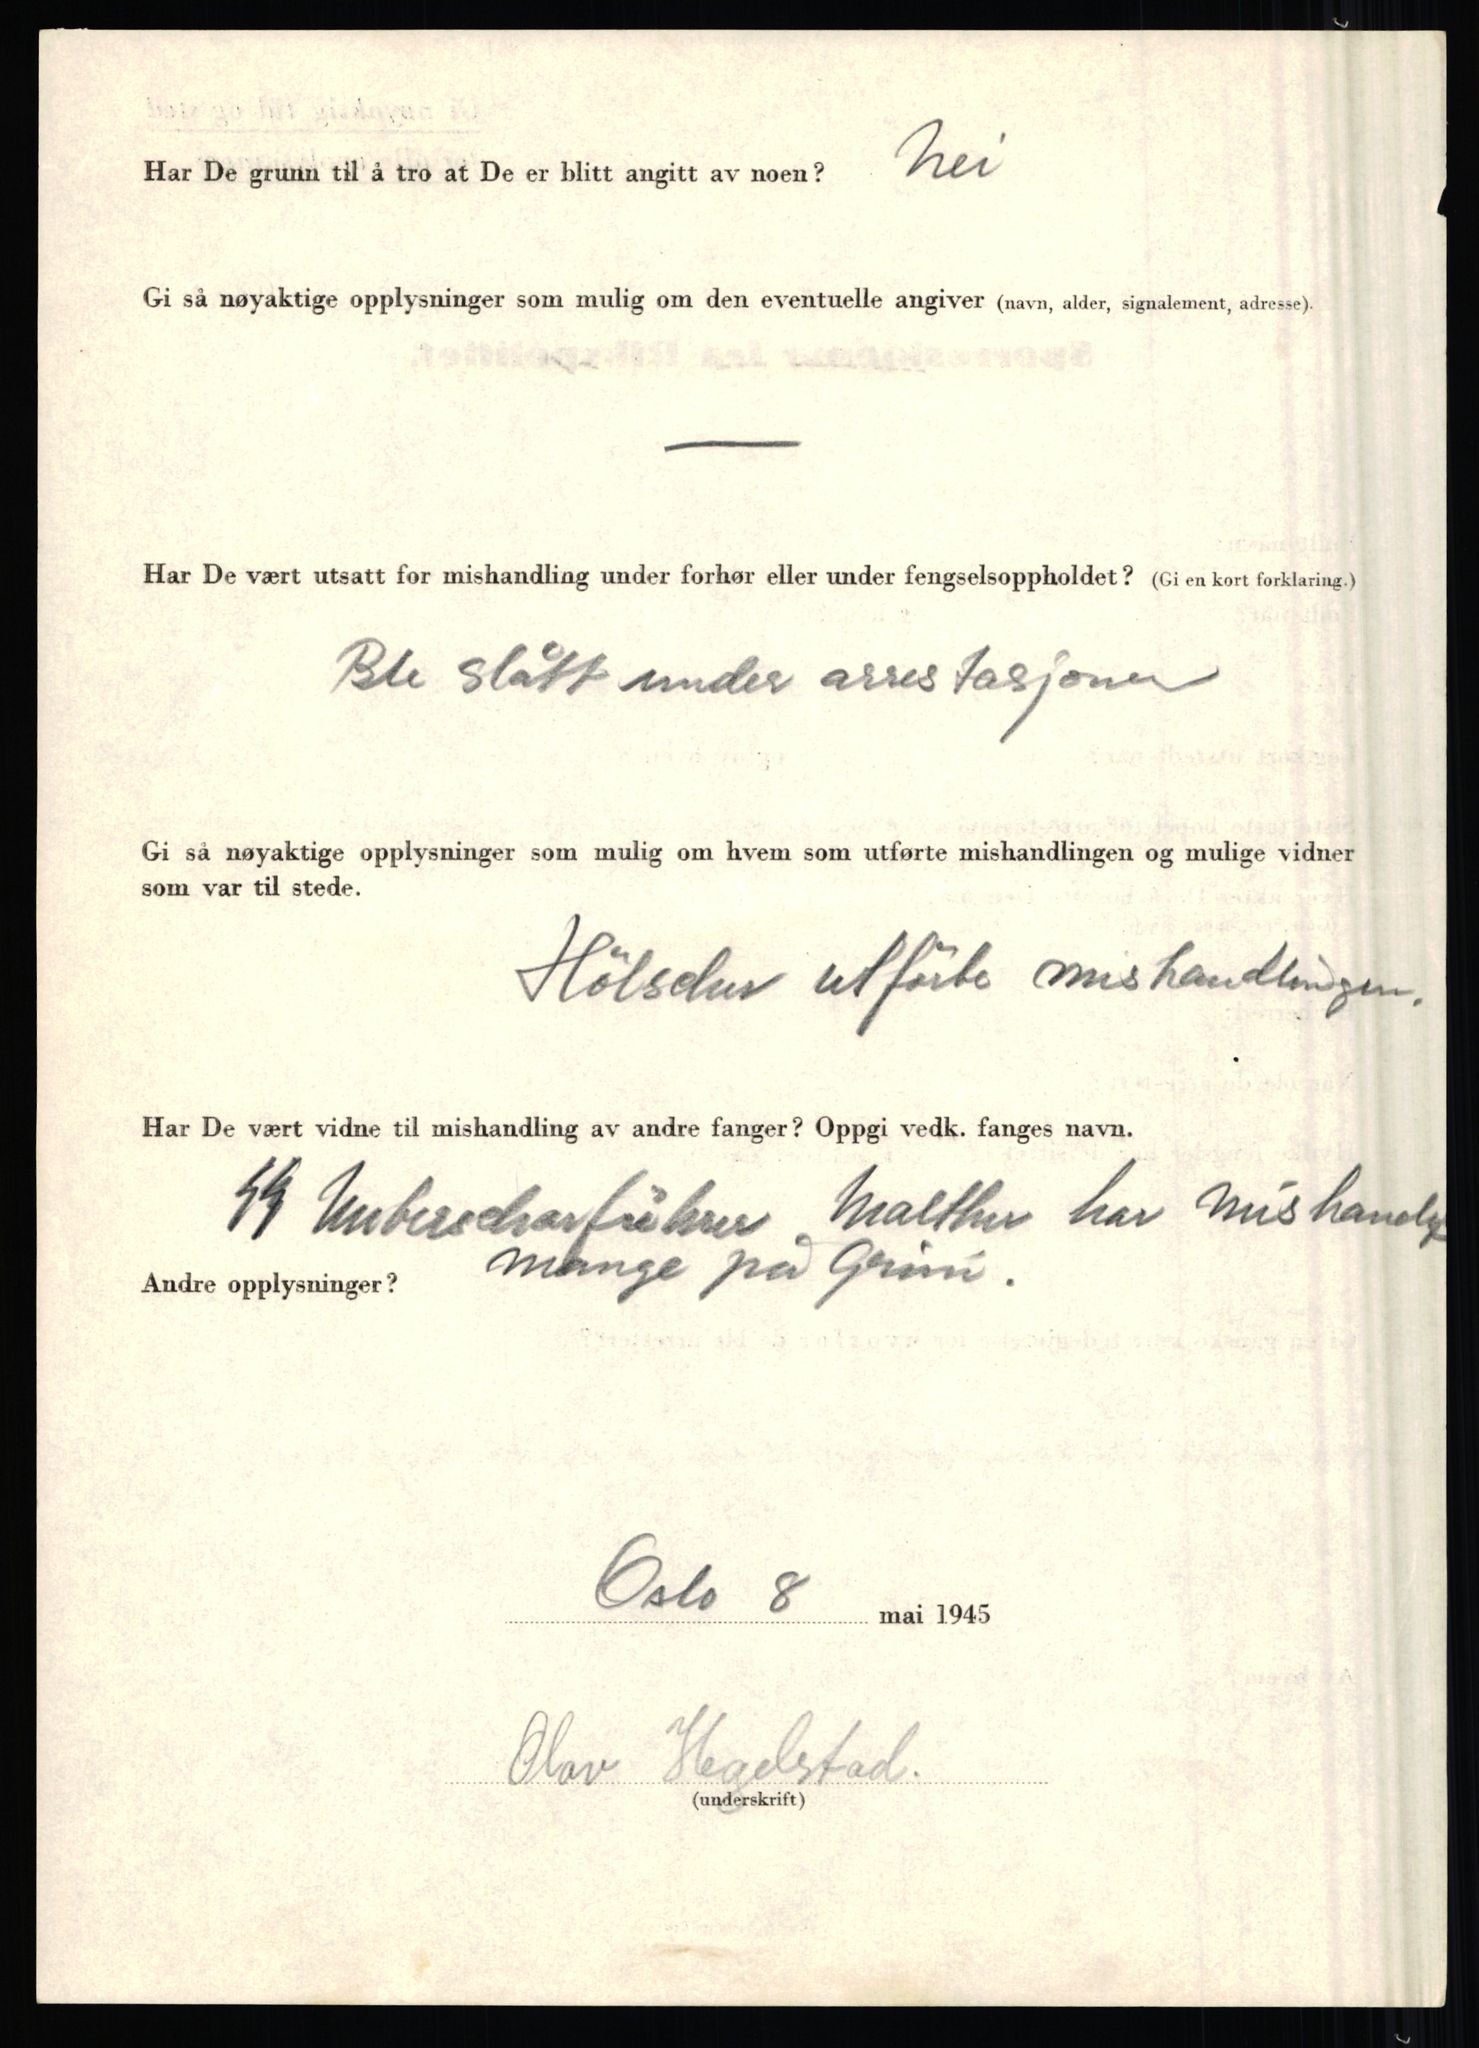 Har De grunn til å tro at De er blitt angitt av noen? Nei
Gi så nøyaktige opplysninger som mulig om den eventuelle angiver (navn, alder, signalement, adresse).
Har De vært utsatt for mishandling under forhør eller under fengselsoppholdet? (Gi en kort forklaring.)
Ble slått under arrestasjonen
Gi så nøyaktige opplysninger som mulig om hvem som utførte mishandlingen og mulige vidner
som var til stede.
utförte mishandlingen.
Har De vært vidne til mishandling av andre fanger? Oppgi vedk. fanges navn.
SS Unterscharführer har mishandlet
mange på Grini.
Andre opplysninger?
Oslo 8 mai 1945
Olav Hegelstad.
(underskrift)